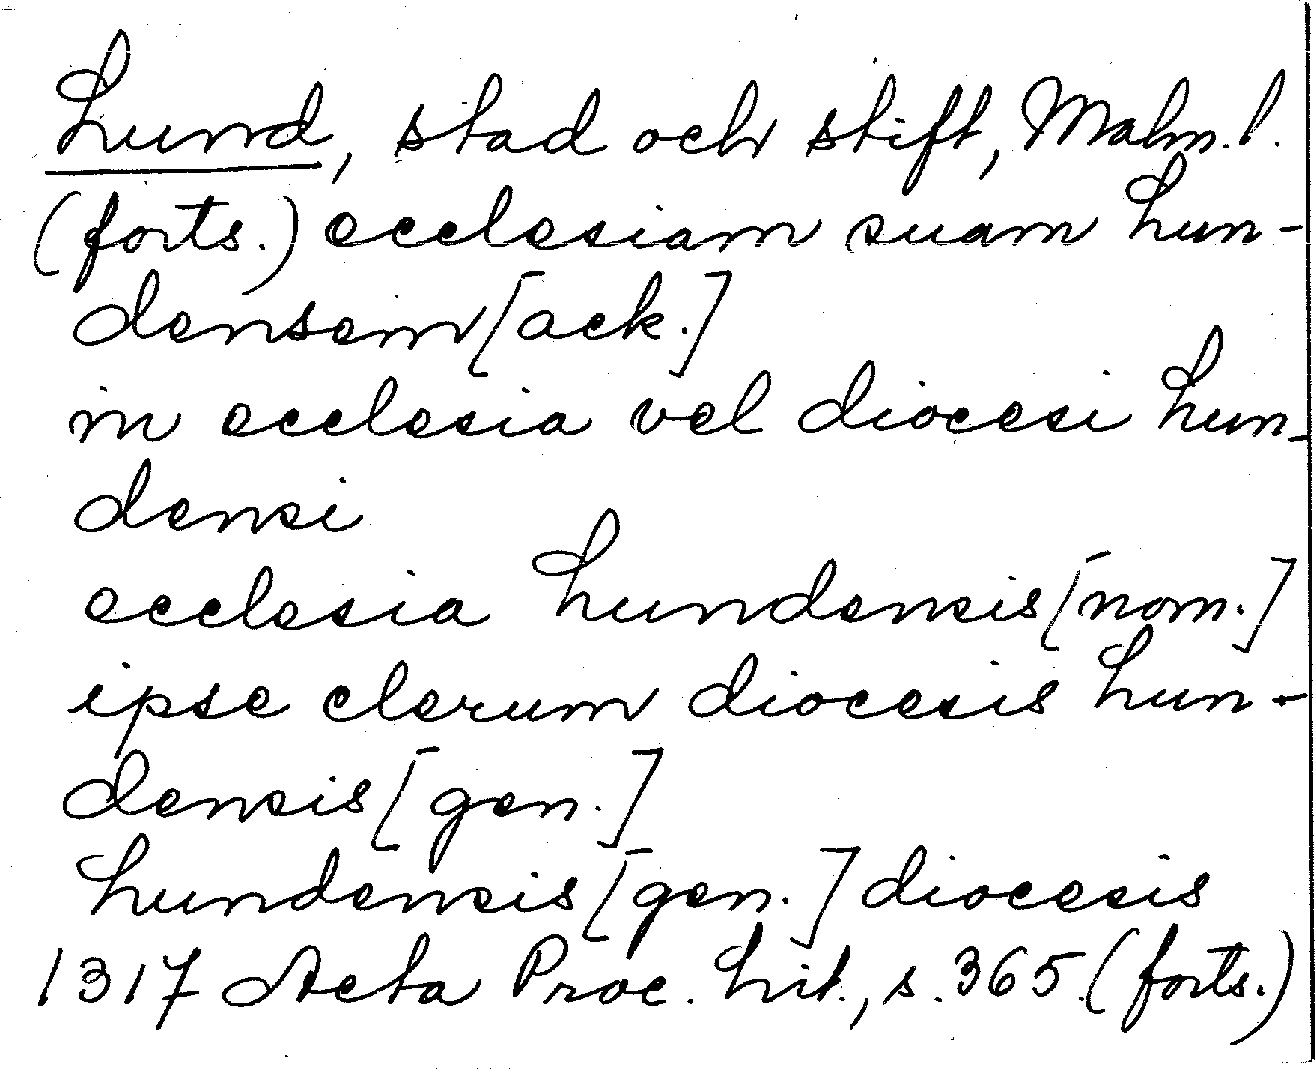 Lund, stad och stift, Malm. l.
(forts.) ecclesiam suam Lun-
densem [ack.]
in ecclesia vel diocesi Lun-
densi
ecclesia Lundensis [nom.]
ipse clerum diocesis Lun-
densis [gen.]
Lundensis [gen.] diocesis
1317 Acta Proc. Lit., s. 365. (forts.)